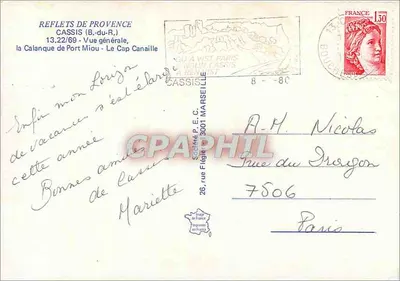 REFLETS DE PROVENCE
CASSIS (B.-du-R.)
13.22/69 - Vue générale,
la Calanque de Port Miou - Le Cap Canaille
FRANCE
1,30
CASSIS
8 - -80
Enfin mon horizon
de vacances s'est élargi
cette année
Bonnes amitiés
de Cassis
Mariette
26, rue Filgié 13001 MARSEILLE
CPAPHIL
A-M. Nicolas
7 rue du Dragon
75006
Paris